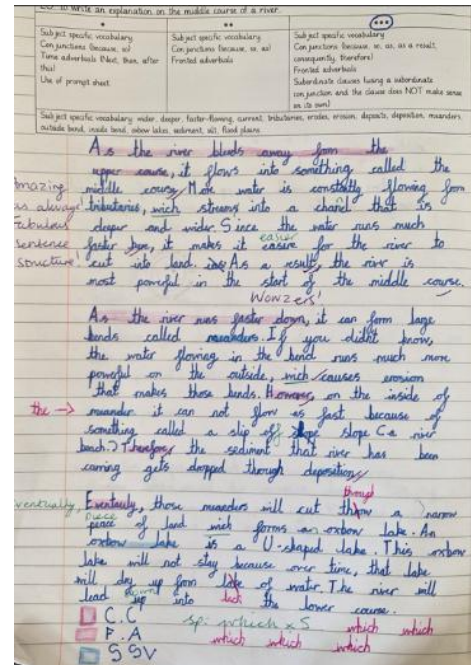 LO: To write an explanation on the middle course of a river.
* ** ***
Subject specific vocabulary
Conjunctions (because, so)
Time adverbials (Next, then, after this)
Use of prompt sheet
Subject specific vocabulary
Conjunctions (because, so, as)
Fronted adverbials
Subject specific vocabulary
Conjunctions (because, so, as, as a result, consequently, therefore)
Fronted adverbials
Subordinate clauses (using a subordinate conjunction and the clause does NOT make sense on its own)
Subject specific vocabulary: wider, deeper, faster-flowing, current, tributaries, erodes, erosion, deposits, deposition, meanders
outside bend, inside bend, oxbow lakes, sediment, silt, flood plains
As the river bleeds away from the
upper course, it flows into something called the
middle course. More water is constantly flowing from
tributaries, wich streams into a chanel that is
deeper and wider. Since the water runs much
faster here, it makes it easier for the river to
cut into land. As a result, the river is
most powerful in the start of the middle course.
Amazing
as always
Fabulous
sentence
structure!
easier
Wowzers!
As the river runs faster down, it can form large
bends called meanders. If you didn't know,
the water flowing in the bend runs much more
powerful on the outside, wich causes erosion
that makes those bends. However, on the inside of
the → meander it can not flow as fast because of
something called a slip off slope (a river
beach.) Therefore, the sediment that river has been
carring gets dropped through deposition.
through
Eventually, Eventauly, those meanders will cut a narrow
piece
peace of land wich forms an oxbow lake. An
oxbow lake is a U-shaped lake. This oxbow
lake will not stay because over time, that lake
will dry up from of water. The river will
lead into the lower course.
down
lack
C.C
F.A
SSV
sp: which x5
which which
which which which